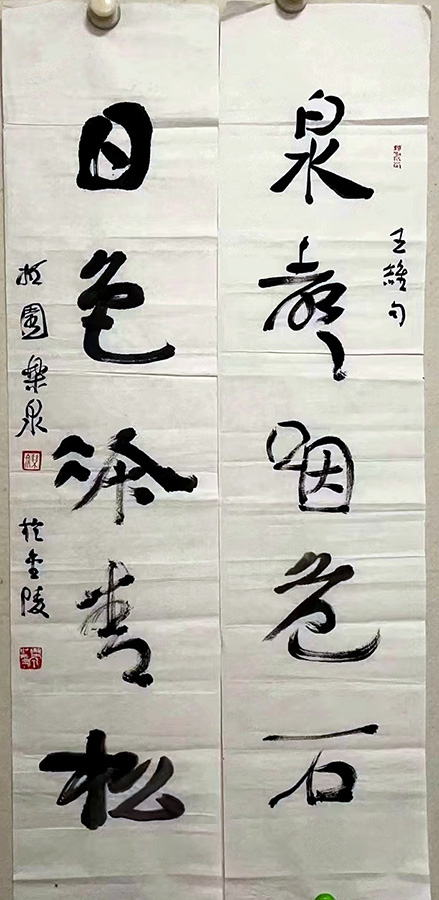 王維句
泉聲咽危石
日色冷青松
拙園樂泉於金陵